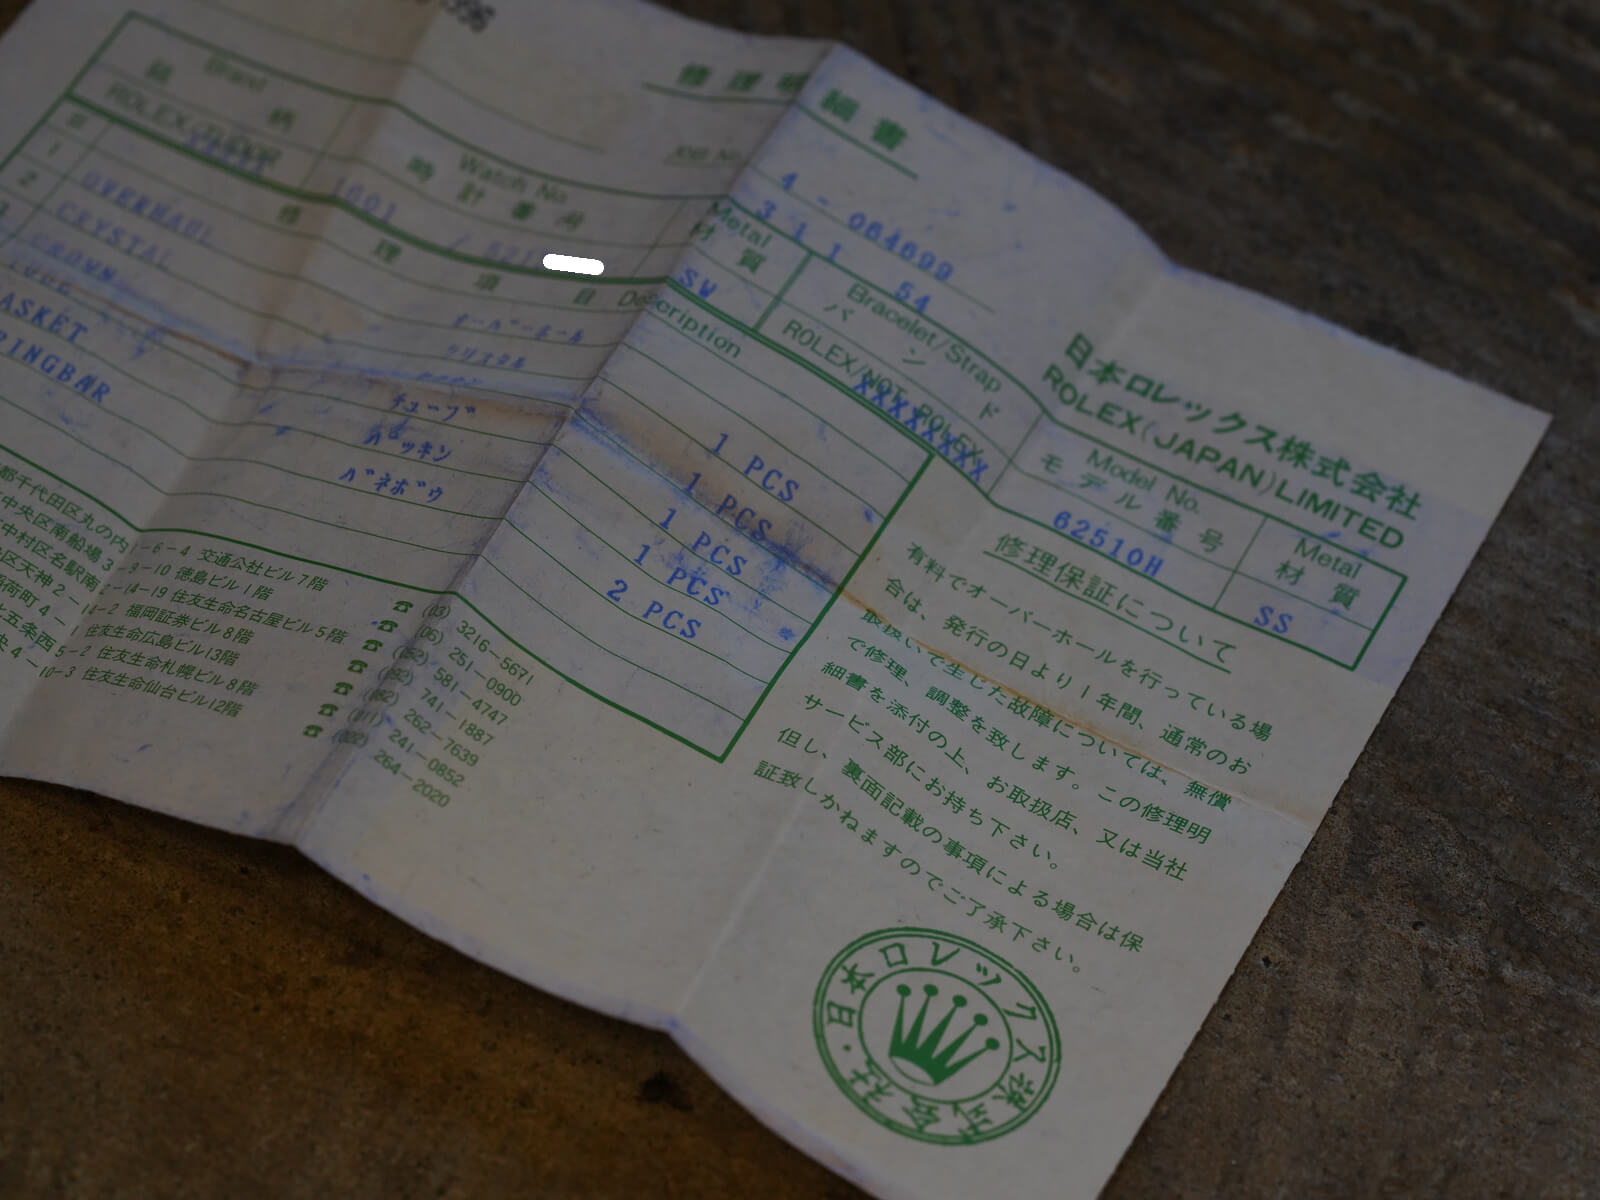 修理明細書
4 - 064699
3 1 1 54
日本ロレックス株式会社
ROLEX(JAPAN)LIMITED
Brand
銘 柄
Watch No.
時 計 番 号
Metal
材 質
Bracelet/Strap
バ ン ド
Model No.
モ デ ル 番 号
Metal
材 質
ROLEX/TUDOR
1601
SW
ROLEX/NOT ROLEX
62510H
SS
修 理 項 目 Description
1 OVERHAUL オーバーホール
2 CRYSTAL クリスタル 1 PCS
3 CROWN 1 PCS
チューブ 1 PCS
パッキン 1 PCS
SPRINGBAR バネボウ 2 PCS
都千代田区丸の内
-6-4 交通公社ビル7階 ☎ (03) 3216-5671
中央区南船場3
-9-10 徳島ビル1階 ☎ (06) 251-0900
中村区名駅南
-14-19 住友生命名古屋ビル5階 ☎ (052) 581-4747
区天神2-
14-2 福岡証券ビル8階 ☎ (092) 741-1887
稲荷町4-
住友生命広島ビル13階 ☎ (082) 262-7639
五条西
5-2 住友生命札幌ビル8階 ☎ (011) 241-0852
央4-
10-3 住友生命仙台ビル12階 ☎ (022) 264-2020
修理保証について
有料でオーバーホールを行っている場
合は、発行の日より1年間、通常のお
取扱いで生じた故障については、無償
で修理、調整を致します。この修理明
細書を添付の上、お取扱店、又は当社
サービス部にお持ち下さい。
但し、裏面記載の事項による場合は保
証致しかねますのでご了承下さい。
日本ロレックス株式会社